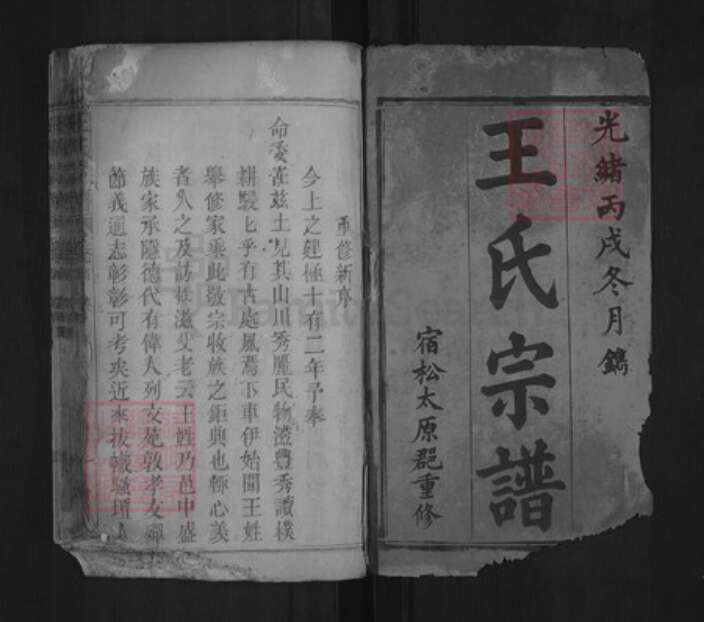 光緒丙戌冬月鐫
王氏宗譜
宿松太原郡重修
重修新序
今上之建極十有二年予奉
命委莅茲土見其山川秀麗民物滋豐秀讀樸
耕駸乎有古處風焉下車伊始聞王姓
舉修家乘此敬宗收族之鉅典也輒心羡
者久之及訪松滋父老云王姓乃邑中盛
族家承隱德代有偉人列文苑敦孝友
節義通志彰彰可考矣近來拔幟騷壇